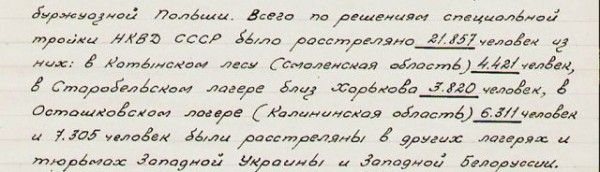 буржуазной Польши. Всего по решениям специальной
тройки НКВД СССР было расстреляно 21.857 человек из
них: в Катынском лесу (Смоленская область) 4.421 человек,
в Старобельском лагере близ Харькова 3.820 человек, в
Осташковском лагере (Калининская область) 6.311 человек
и 7.305 человек были расстреляны в других лагерях и
тюрьмах Западной Украины и Западной Белоруссии.